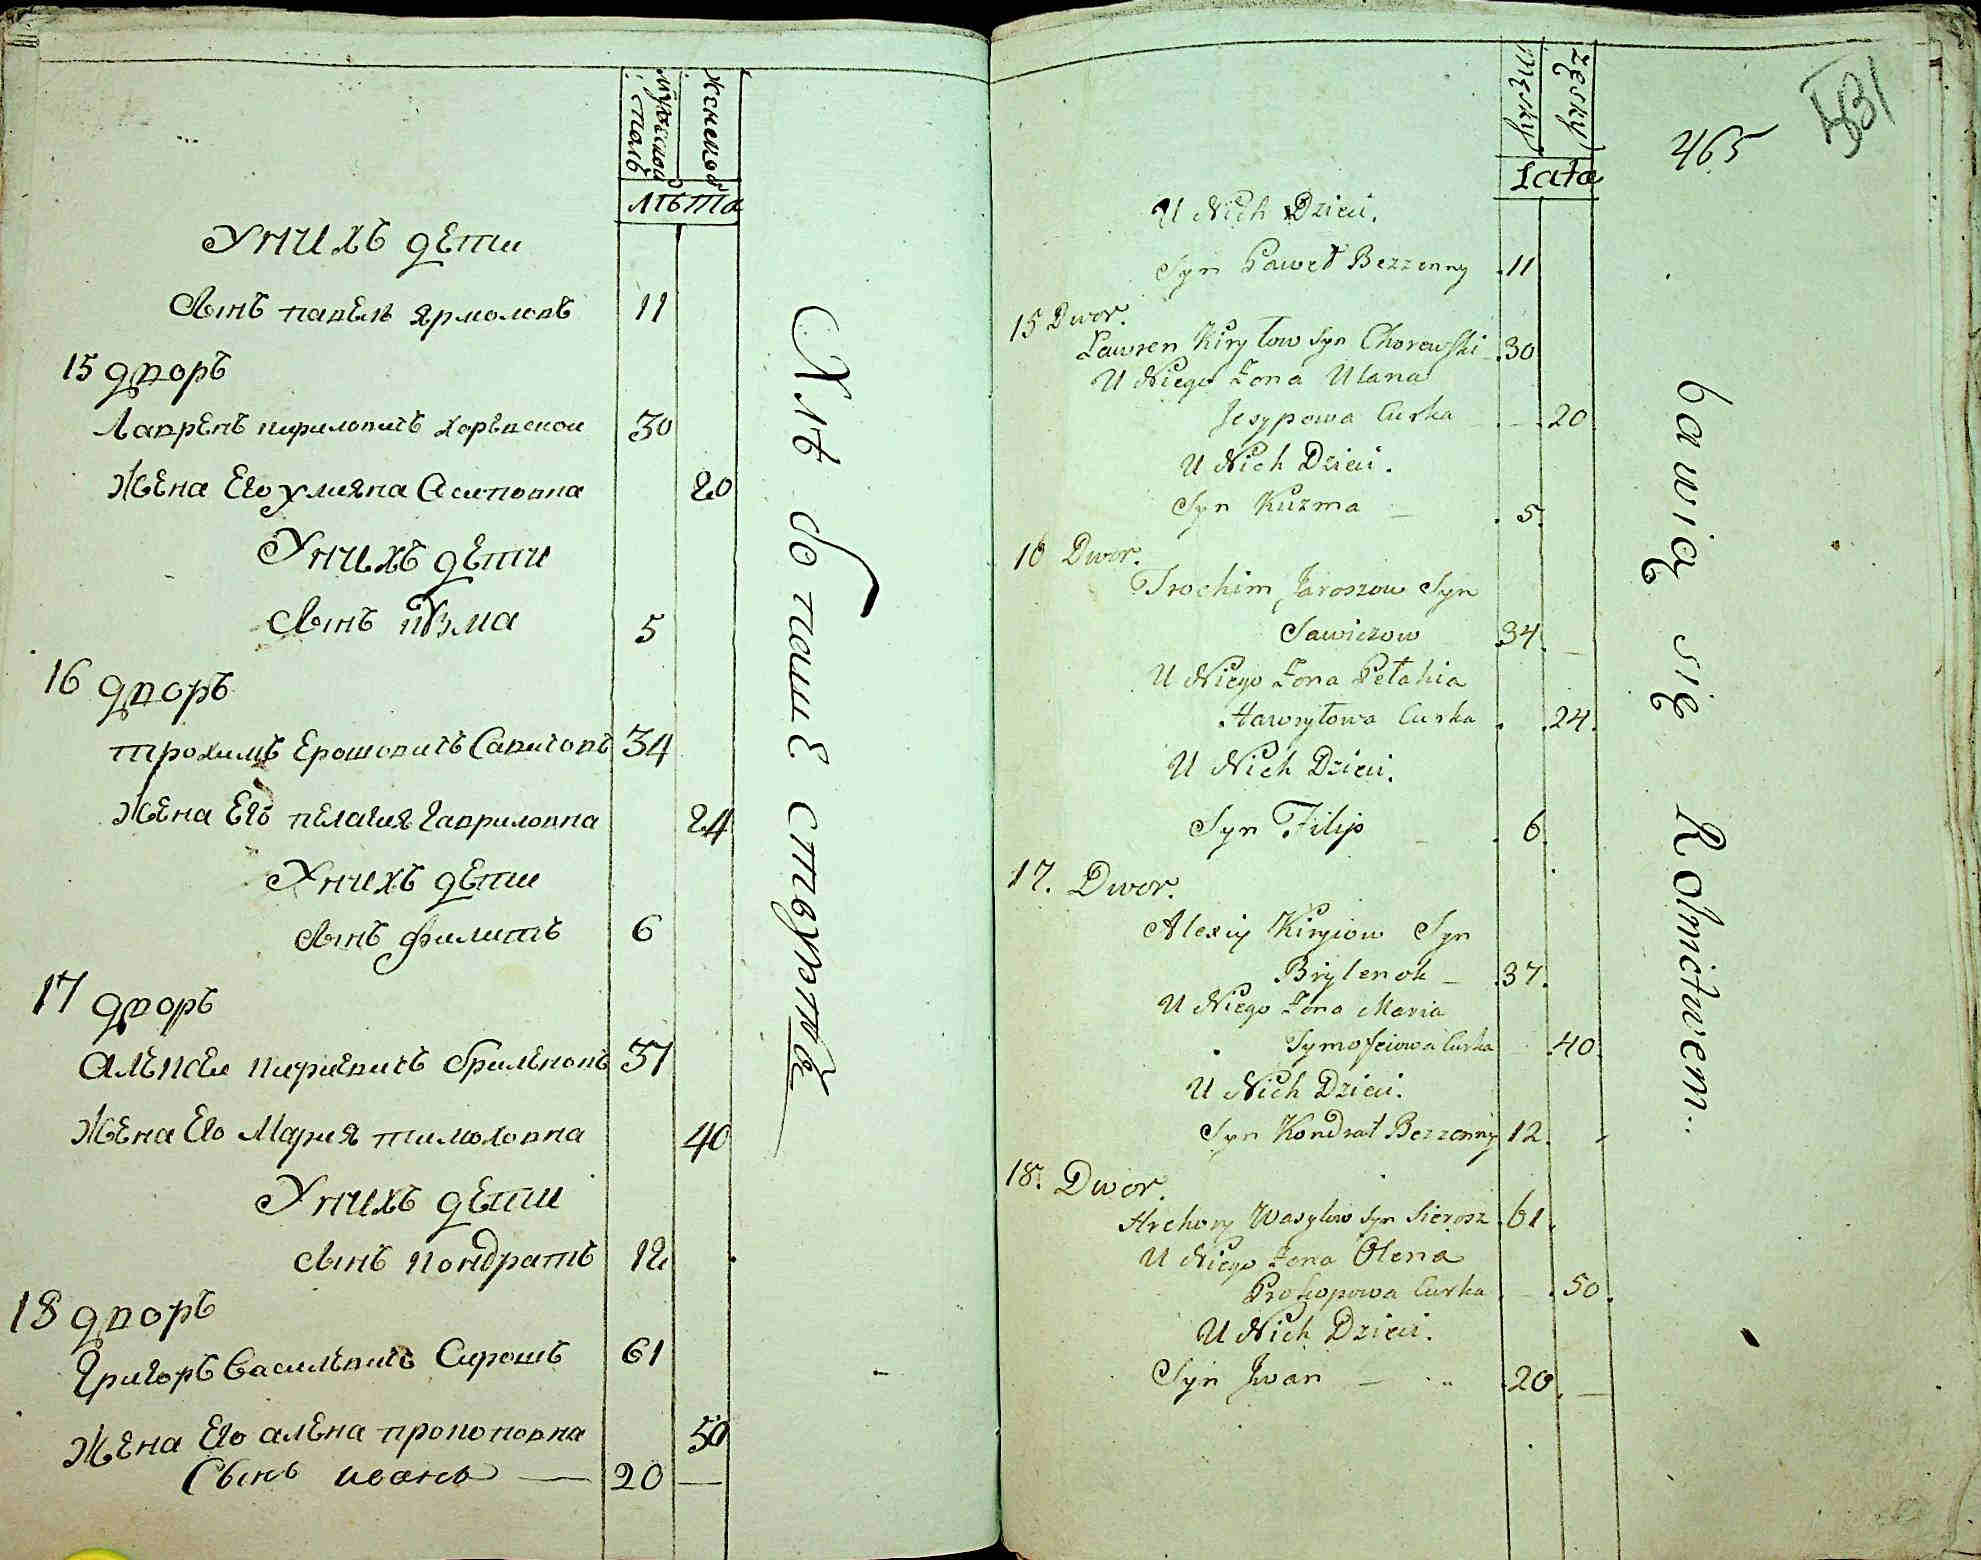 мужской полъ
женской
лѣта
У нихъ дети
Сынъ павелъ Ярмоловъ 11
15 дворъ
Лавренъ кириловичъ хоревской 30
Жена Его улияна Осиповна 20
У нихъ дети
Сынъ кузма 5
16 дворъ
трохимъ Ерошовичъ Савичовъ 34
Жена Его пелагия Гавриловна 24
У нихъ дети
Сынъ филипъ 6
17 дворъ
Алексеи кириевичъ брыленокъ 37
Жена Его Мария тимоховна 40
У нихъ дети
Сынъ кондратъ 12
18 дворъ
Григоръ Василевичъ Сирошъ 61
Жена Его алена прокоповна 50
Сынъ иванъ — 20 —
Męsky
Zęsky
Lata
465
U Nich Dzieci.
Syn Paweł Bezzenny 11
15 Dwor.
Lawren Kiryłow Syn Chorewski 30
U Niego Zona Ulana
Jesypowa Curka 20
U Nich Dzieci.
Syn Kuzma 5
16 Dwor.
Trochim Jaroszow Syn
Sawiczow 34
U Niego Zona Pełahia
Hawryłowa Curka 24
U Nich Dzieci.
Syn Filip 6
17. Dwor.
Alexiy Kiryiow Syn
Brylenok 37
U Niego Zona Maria
Tymofeiowa Curka 40
U Nich Dzieci.
Syn Kondrat Bezzenny 12
18. Dwor.
Hrehory Wasylow Syn Sierosz 61
U Niego Zona Olena
Prokopowa Curka 50
U Nich Dzieci.
Syn Jwan 20
bawią się Rolnictwem.